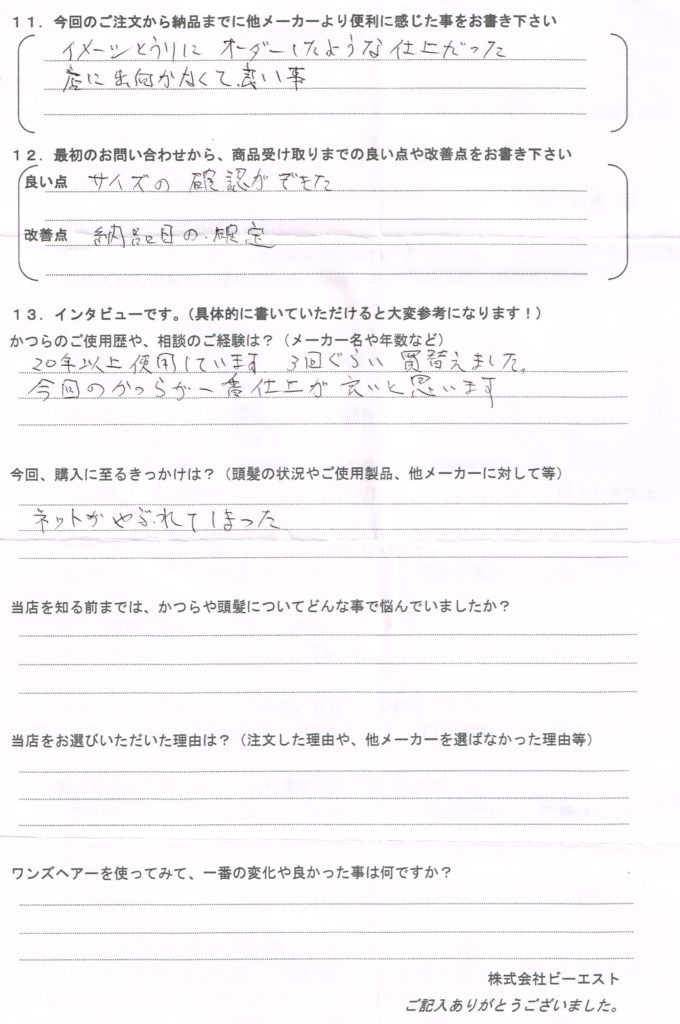 １１．今回のご注文から納品までに他メーカーより便利に感じた事をお書き下さい
イメージとうりに オーダーしたような仕上だった
店に出向かなくて良い事
１２．最初のお問い合わせから、商品受け取りまでの良い点や改善点をお書き下さい
良い点 サイズの確認ができた
改善点 納品日の規定
１３．インタビューです。（具体的に書いていただけると大変参考になります！）
かつらのご使用歴や、相談のご経験は？（メーカー名や年数など）
20年以上使用しています 3回ぐらい買替えました。
今回のかつらが一番仕上が良いと思います
今回、購入に至るきっかけは？（頭髪の状況やご使用製品、他メーカーに対して等）
ネットがやぶれてしまった
当店を知る前までは、かつらや頭髪についてどんな事で悩んでいましたか？
当店をお選びいただいた理由は？（注文した理由や、他メーカーを選ばなかった理由等）
ワンズヘアーを使ってみて、一番の変化や良かった事は何ですか？
株式会社ビーエスト
ご記入ありがとうございました。